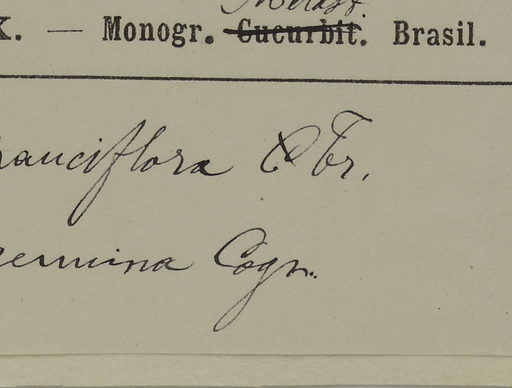 Melast.
X. — Monogr. Cucurbit. Brasil.
pauciflora Tr.
genuina Cogn.